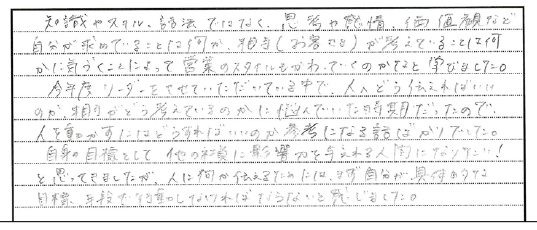 知識やスキル、話法ではなく、思考や感情、価値観など
自分が求めていることは何か、相手(お客さま)が考えていることは何
かに気づくことによって営業のスタイルもかわっていくのかなと学びました。
今年度リーダーをさせていただいている中で、人へどう伝えればいい
のか相手がどう考えているのかに悩んでいた時期だったので、
人を動かすにはどうすればいいのか参考になる話ばかりでした。
自身の目標として他の社員に影響力を与えれる人間になりたい!
と思ってきましたが、人に何か伝えるためには、まず自分が具体的な
目標、手段で行動しなければならないと感じました。